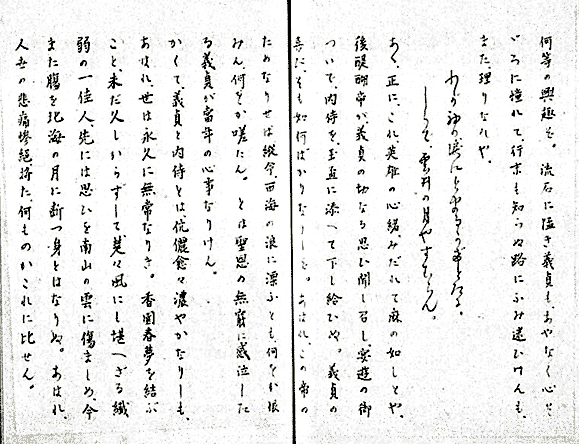 何等の興趣ぞ。流石に猛き義貞も、あやなく心そ
ゞろに憧れて、行末も知らぬ路にふみ迷ひけんも、
また理りなれや。
わが袖の涙に
しらで雲井の月やすむらん。
あゝ、正に、これ英雄の心緒、みだれて麻の如しとや、
後醍醐帝が、義貞の切なる思ひ聞し召し、宴遊の御
ついで、内侍を、玉盃に添へて下し給ひぬ。義貞の
喜び、そも如何ばかりなりしぞ。あはれ、この帝の
ためなりせば縦令、西海の浪に漂ふとも、何をか恨
みん、何をか嗟たん。とは聖恩の無窮に感泣した
る義貞が当年の心事なりけん。
かくて、義貞と内侍とは、伉儷愈々濃やかなりしも、
あはれ、世は永久に無常なりき。香閨春夢を結ぶ
こと未だ久しからずして、荒々風にし堪へざる繊
弱の一佳人、先には思ひを南山の雲に傷ましめ、今
また腸を北海の月に断つ身とはなりぬ。あはれ、
人世の悲痛惨絶、将た、何ものかこれに比せん。